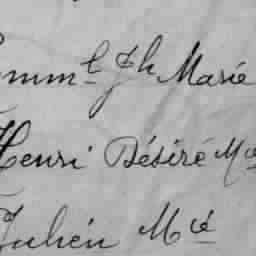 Emm.l Jh Marie
Henri Désiré Mce
Julien Mcé